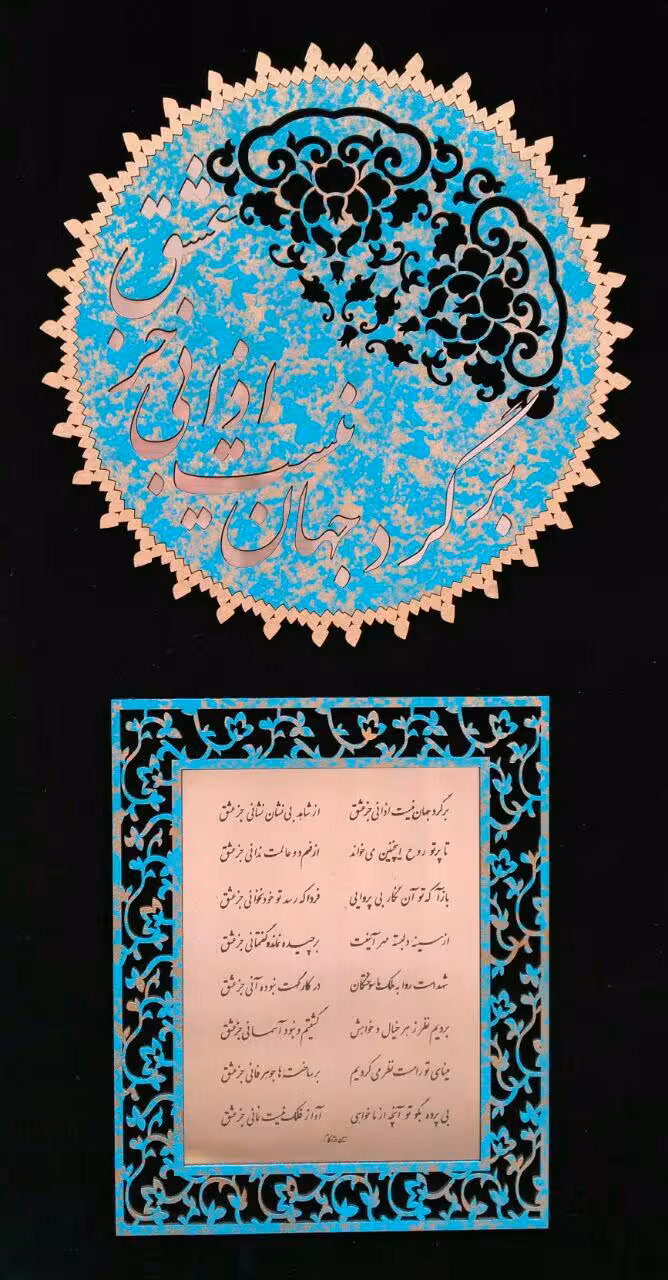 بر گرد جهان نیست اذانی جز عشق
برگرد جهان نیست اذانی جز عشق از شاهد بی نشان نشانی جز عشق
تا پرتو روح اینچنین می‌خواند از هم دو عالمت ندانی جز عشق
بازآ که تو آن نگار بی پروایی فردا که رسد تو خود نخوانی جز عشق
از سینه دلبسته مهر آیینت برچیده نمانده گفتمانی جز عشق
شهد است روا به ملک ما سوختگان در کار گهت نبوده آنی جز عشق
بردیم نظر ز هر خیال و خواهش گشتیم و نبود آسمانی جز عشق
مینای تو راست نظر می کردیم بر ساخته ها جوهر فانی جز عشق
بی پرده بگو تو آنچه از ما خواهی آواز فلک نیست نمانی جز عشق